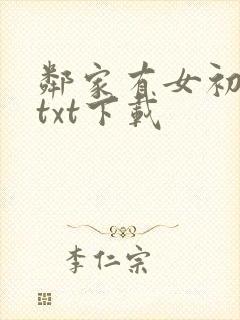 鄰家有女初
txt下載
李仁宗